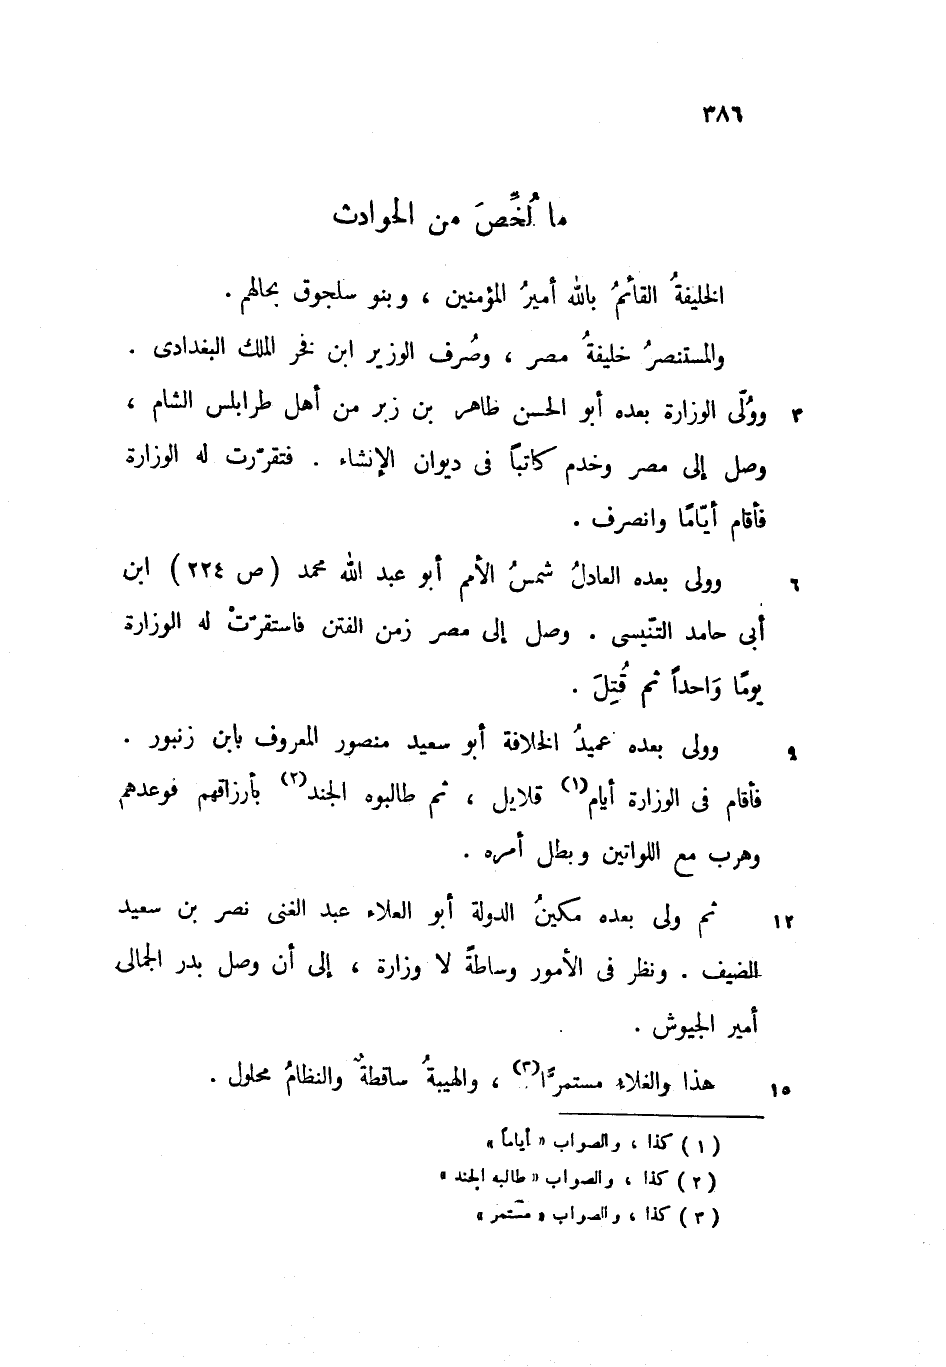 ٣٨٦
ما لُخِّصَ من الحوادث
الخليفةُ القائمُ بالله أميرُ المؤمنين ، وبنو سلجوق بحالهم .
والمستنصرُ خليفةُ مصر ، وصُرف الوزير ابن فخر الملك البغدادى .
٣ ووُلّى الوزارة بعده أبو الحسن ظاهر بن زبر من أهل طرابلس الشام ،
وصل إلى مصر وخدم كاتباً فى ديوان الإنشاء . فتقرّرت له الوزارة
فأقام أيّامًا وانصرف .
٦ وولى بعده العادلُ شمسُ الأمم أبو عبد الله محمد ( ص ٢٢٤ ) ابن
أبى حامد التنّيسى . وصل إلى مصر زمن الفتن فاستقرّتْ له الوزارة
يومًا وَاحداً ثم قُتِلَ .
٩ وولى بعده عميدُ الخلافة أبو سعيد منصور المعروف بابن زنبور .
فأقام فى الوزارة أيام(١) قلايل ، ثم طالبوه الجند(٢) بأرزاقهم فوعدهم
وهرب مع اللواتين وبطل أمره .
١٢ ثم ولى بعده مكينُ الدولة أبو العلاء عبد الغنى نصر بن سعيد
الضيف . ونظر فى الأمور وساطةً لا وزارة ، إلى أن وصل بدر الجمالى
أمير الجيوش .
١٥ هذا والغلاء مستمرًّا(٣) ، والهيبةُ ساقطةٌ والنظامُ محلول .
( ١ ) كذا ، والصواب « أياماً »
( ٢ ) كذا ، والصواب « طالبه الجند »
( ٣ ) كذا ، والصواب « مستمر »